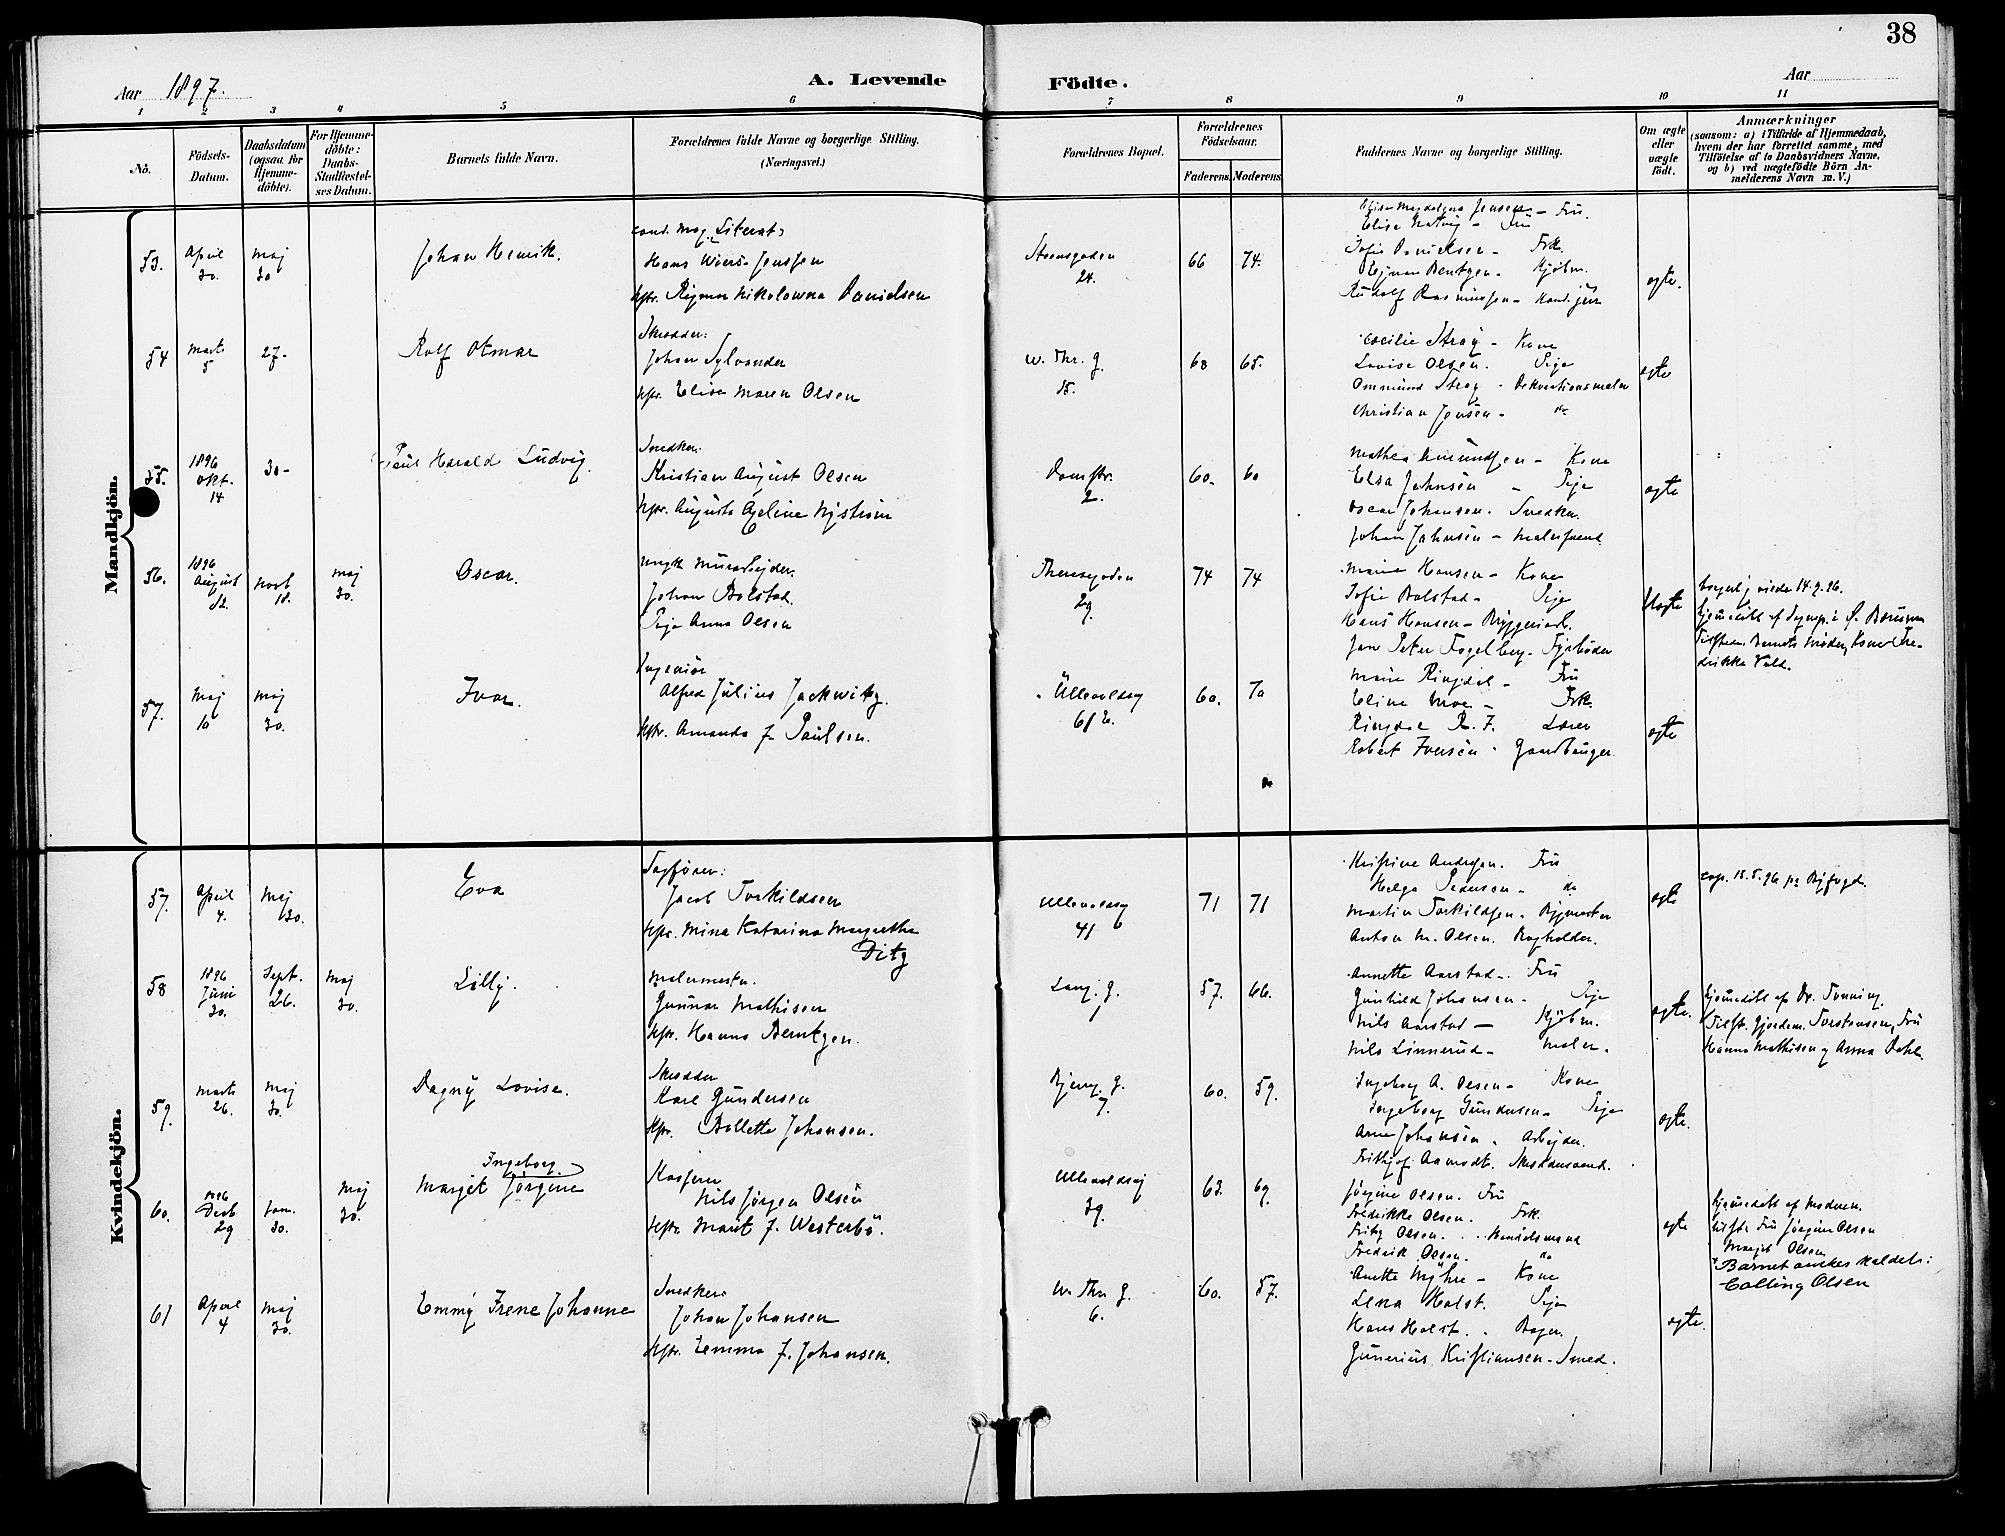 38
Aar 1897.
A. Levende
Födte.
Aar
1 2 3 4 5 6 7 8 9 10 11
No.
Födsels-Datum.
Daabsdatum (ogsaa for Hjemme-döbte).
For Hjemme-döbte: Daabs-Stadfæstel-ses Datum.
Barnets fulde Navn.
Forældrenes fulde Navne og borgerlige Stilling.
(Næringsvei.)
Forældrenes Bopæl.
Forældrenes Födselsaar.
Faderens. Moderens.
Faddernes Navne og borgerlige Stilling.
Om ægte eller uægte födt.
Anmærkninger
(saasom: a) i Tilfælde af Hjemmedaab,
hvem der har forrettet samme, med
Tilföielse af to Daabsvidners Navne,
og b) ved uægtefödte Börn An-
melderens Navn m. V.)
Mandkjön.
53. April 30. Maj 30 Johan Henrik.
cand. mag. Literat:
Hans Wiers-Jenssen
Hstr. Ragna Nikolowna Danielsen
Stensgaden 24. 66 74.
Elise Magdalena Jensen – Fru.
Elise Hatvig – Fru
Sofie Danielsen – Frk.
Ejnar Bentzen – Kjøbm.
Rudolf Rasmussen – Kand. jur
ægte.
54 Marts 5 27- Rolf Otmar
Skrædder:
Johan Sylvander
Hstr. Elise Maren Olsen
W. Thr. g. 15. 68 65.
Cæcilie Stray – Kone
Lovise Olsen. Pige
Ommund Stray - Dekorationsmaler
Christian Jensen – do
ægte
55. 1896 Okt. 14 30- Paul Harald Ludvig.
Snedker:
Kristian August Olsen
Hstr. Augusta Eveline Nystrøm
Damstr. 2. 60. 60
Mathea Amundsen – Kone
Elsa Johnsen – Pige
Oscar Johansen. Snedker.
Johan Johnsen – Malersvend.
ægte
56. 1896 August 12. Novb 18. Maj 30. Oscar.
Ungk. Murarbejder.
Johan Bolstad.
Pige Anna Olsen
Theresegaden 29. 74 74
Marie Hansen – Kone
Sofie Bolstad – Pige
Hans Hansen – Bryggeriarb.
Jon Peter Fogelberg – Fyrbøder
Uægte
borgerlig viede 14.9.96.
hjemmedøbt af
Barnets Moder, Kone Fre-
drikke Vold.
57. Maj 10 Maj 30. Ivar.
Ingeniør
Alfred Julius Jackwitz.
Hstr. Amanda J. Paulsen.
Ullevoldsv 61 E. 60. 70
Marie Ringdal – Fru
Eline Moe – Frk.
Ringdal R. F. Lærer
Robert Iversen - Gaardbruger.
ægte
Kvindekjön.
57. April 4. Maj 30. Eva
Sagfører:
Jacob Torkildsen
Hstr. Mina Katarina Margrethe
Ditz
Ullevoldsv 41 b 71 71
Kristine Andersen. Fru
Helga Pedersen – do
Martin Torkildsen. Bygmester
Anton M. Olsen. Bogholder.
ægte
cop. 15.5.96 pr Byfogd.
58 1896 Juni 30. Sept. 26. Maj 30. Lilly.
Malermester.
Gunnar Mathisen
Hstr. Hanna Berntzen.
Lang. g. 57. 66.
Annette Aarstad – Fru
Gunhild Johansen – Pige
Nils Aarstad – Kjøbm.
Nils Linnerud – Maler.
ægte.
hjemmedøbt af Dr. Tønning.
Tilst. Gjordem. Torstensen, Fru
Hanna Mathisen og Anna Dahl.
59. Marts 26. Maj 30. Dagny Lovise.
Skrædder
Karl Gundersen
Hstr. Bollette Johansen.
Bjerg. g. 7. 60. 59.
Ingeborg A. Olsen – Kone
Ingeborg Gundersen – Pige
Arne Johansen. Arbejder.
Frithjof Aamodt. Skræddersvend.
ægte.
60. 1896 Decb 29 Jan. 30. Maj 30. Margit Ingeborg Jørgine
Kasserer
Nils Jørgen Olsen
Hstr. Marit J. Westerbø.
Ullevoldsvej 39. 63. 69.
Jørgine Olsen. Fru
Fredrikke Olsen. Frk.
Fritz Olsen. Handelsmand
Fredrik Olsen. do
ægte
hjemmedøbt af Moderen.
tilst. Fru Jørgine Olsen
Margit Olsen
Barnet ønskes kaldet:
Colling Olsen
61 April 4 Maj 30. Emmy Irene Johanne
Snedker:
Johan Johansen
Hstr. Emma J. Johansen.
W. Thr. g. 6. 60. 57.
Anette Myhre – Kone
Lena Holst. Pige
Hans Holst. Bager.
Gunerius Kristiansen – Smed.
ægte.